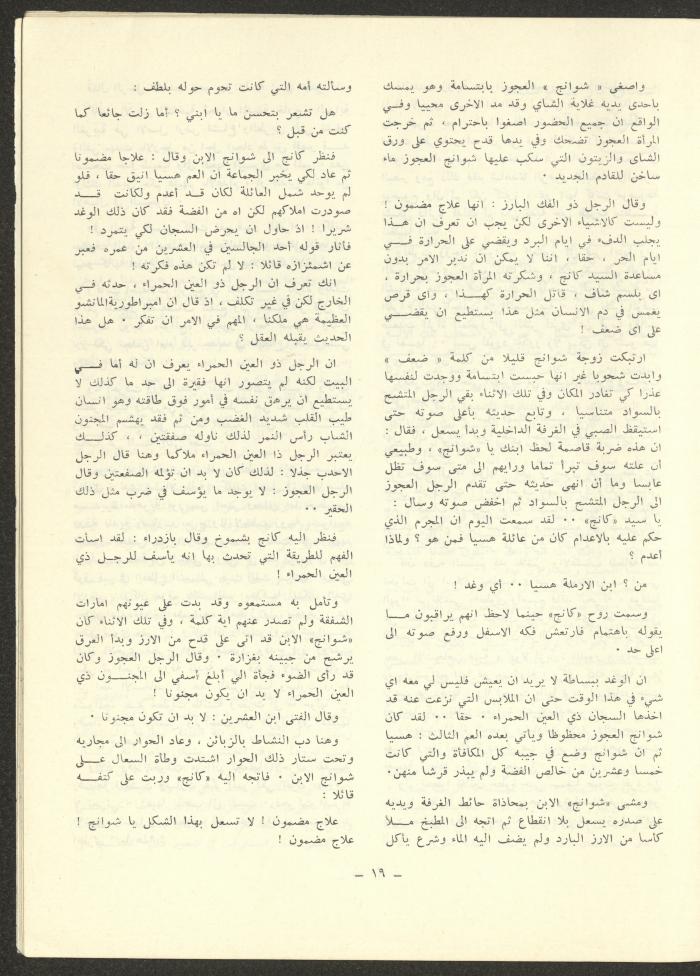 واصغى « شوانج » العجوز بابتسامة وهو يمسك
باحدى يديه غلاية الشاي وقد مد الاخرى محييا وفي
الواقع ان جميع الحضور اصغوا باحترام ، ثم خرجت
المرأة العجوز تضحك وفي يدها قدح يحتوي على ورق
الشاى والزيتون التي سكب عليها شوانج العجوز ماء
ساخن للقادم الجديد ٠
وقال الرجل ذو الفك البارز : انها علاج مضمون !
وليست كالاشياء الاخرى لكن يجب ان تعرف ان هذا
يجلب الدفء في ايام البرد ويقضي على الحرارة في
ايام الحر ، حقا ، اننا لا يمكن ان ندير الامر بدون
مساعدة السيد كانج ، وشكرته المرأة العجوز بحرارة ،
اى بلسم شاف ، قاتل الحرارة كهذا ، واى قرص
يغمس في دم الانسان مثل هذا يستطيع ان يقضي
على اى ضعف !
ارتبكت زوجة شوانج قليلا من كلمة « ضعف »
وابدت شحوبا غير انها حبست ابتسامة ووجدت لنفسها
عذرا كي تغادر المكان وفي تلك الاثناء بقي الرجل المتشح
بالسواد متناسيا ، وتابع حديثه بأعلى صوته حتى
استيقظ الصبي في الغرفة الداخلية وبدأ يسعل ، فقال :
ان هذه ضربة قاصمة لحظ ابنك يا «شوانج» ، وطبيعي
أن علته سوف تبرأ تماما ورايهم الى متى سوف تظل
عابسا وما أن انهى حديثه حتى تقدم الرجل العجوز
الى الرجل المتشح بالسواد ثم اخفض صوته وسال :
يا سيد «كانج» ٠٠ لقد سمعت اليوم ان المجرم الذي
حكم عليه بالاعدام كان من عائلة هسيا فمن هو ؟ ولماذا
أعدم ؟
من ؟ ابن الارملة هسيا ٠٠ أي وغد !
وسمت روح «كانج» حينما لاحظ انهم يراقبون ما
يقوله باهتمام فارتعش فكه الاسفل ورفع صوته الى
اعلى حد ٠
ان الوغد ببساطة لا يريد ان يعيش فليس لي معه اي
شيء في هذا الوقت حتى ان الملابس التي نزعت عنه قد
اخذها السجان ذي العين الحمراء ٠ حقا ٠٠ لقد كان
شوانج العجوز محظوظا ويأتي بعده العم الثالث : هسيا
ثم ان شوانج وضع في جيبه كل المكافأة والتي كانت
خمسا وعشرين من خالص الفضة ولم يبذر قرشا منهن٠
ومشى «شوانج» الابن بمحاذاة حائط الغرفة ويديه
على صدره يسعل بلا انقطاع ثم اتجه الى المطبخ ملأ
كاسا من الارز البارد ولم يضف اليه الماء وشرع يأكل
وسألته أمه التي كانت تحوم حوله بلطف :
هل تشعر بتحسن ما يا ابني ؟ أما زلت جائعا كما
كنت من قبل ؟
فنظر كانج الى شوانج الابن وقال : علاجا مضمونا
ثم عاد لكي يخبر الجماعة ان العم هسيا انيق حقا ، فلو
لم يوحد شمل العائلة لكان قد أعدم ولكانت قد
صودرت املاكهم لكن اه من الفضة فقد كان ذلك الوغد
شريرا ! اذ حاول ان يحرض السجان لكي يتمرد !
فأثار قوله أحد الجالسين في العشرين من عمره فعبر
عن اشمئزازه قائلا : لا لم تكن هذه فكرته !
انك تعرف ان الرجل ذو العين الحمراء ، حدثه في
الخارج لكن في غير تكلف ، اذ قال ان امبراطورية المانشو
العظيمة هي ملكنا ، المهم في الامر ان تفكر ٠ هل هذا
الحديث يقبله العقل ؟
ان الرجل ذو العين الحمراء يعرف ان له أما في
البيت لكنه لم يتصور انها فقيرة الى حد ما كذلك لا
يستطيع ان يرهق نفسه في أمور فوق طاقته وهو انسان
طيب القلب شديد الغضب ومن ثم فقد يهشم المجنون
الشاب رأس النمر لذلك ناوله صفقتين ، ، كذلك
يعتبر الرجل ذا العين الحمراء ملاكما وهنا قال الرجل
الاحدب جدلا : لذلك كان لا بد ان تؤلمه الصفعتين وقال
الرجل العجوز : لا يوجد ما يؤسف في ضرب مثل ذلك
الحقير ٠٠
فنظر اليه كانج بشموخ وقال بازدراء : لقد اسأت
الفهم للطريقة التي تحدث بها انه يأسف للرجل ذي
العين الحمراء !
وتأمل به مستمعوه وقد بدت على عيونهم امارات
الشفقة ولم تصدر عنهم اية كلمة ، وفي تلك الاثناء كان
«شوانج» الابن قد اتى على قدح من الارز وبدأ العرق
يرشح من جبينه بغزارة ٠ وقال الرجل العجوز وكان
قد رأى الضوء فجأة الي أبلغ أسفي الى المجنون ذي
العين الحمراء لا بد ان يكون مجنونا !
وقال الفتى ابن العشرين : لا بد ان تكون مجنونا ٠
وهنا دب النشاط بالزبائن ، وعاد الحوار الى مجاريه
وتحت ستار ذلك الحوار اشتدت وطأة السعال على
شوانج الابن ٠ فاتجه اليه «كانج» وربت على كتفه
قائلا :
علاج مضمون ! لا تسعل بهذا الشكل يا شوانج !
علاج مضمون !
– ١٩ –